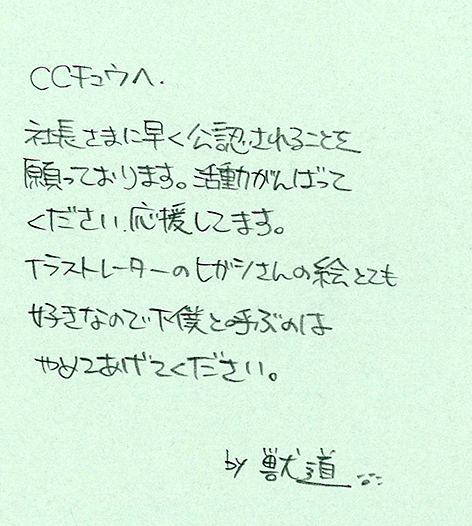 CCチョウへ.
社長さまに早く公認されることを
願っております。活動がんばって
ください.応援してます。
イラストレーターのヒガシさんの絵とても
好きなので下僕と呼ぶのは
やめてあげてください。
by 獣道